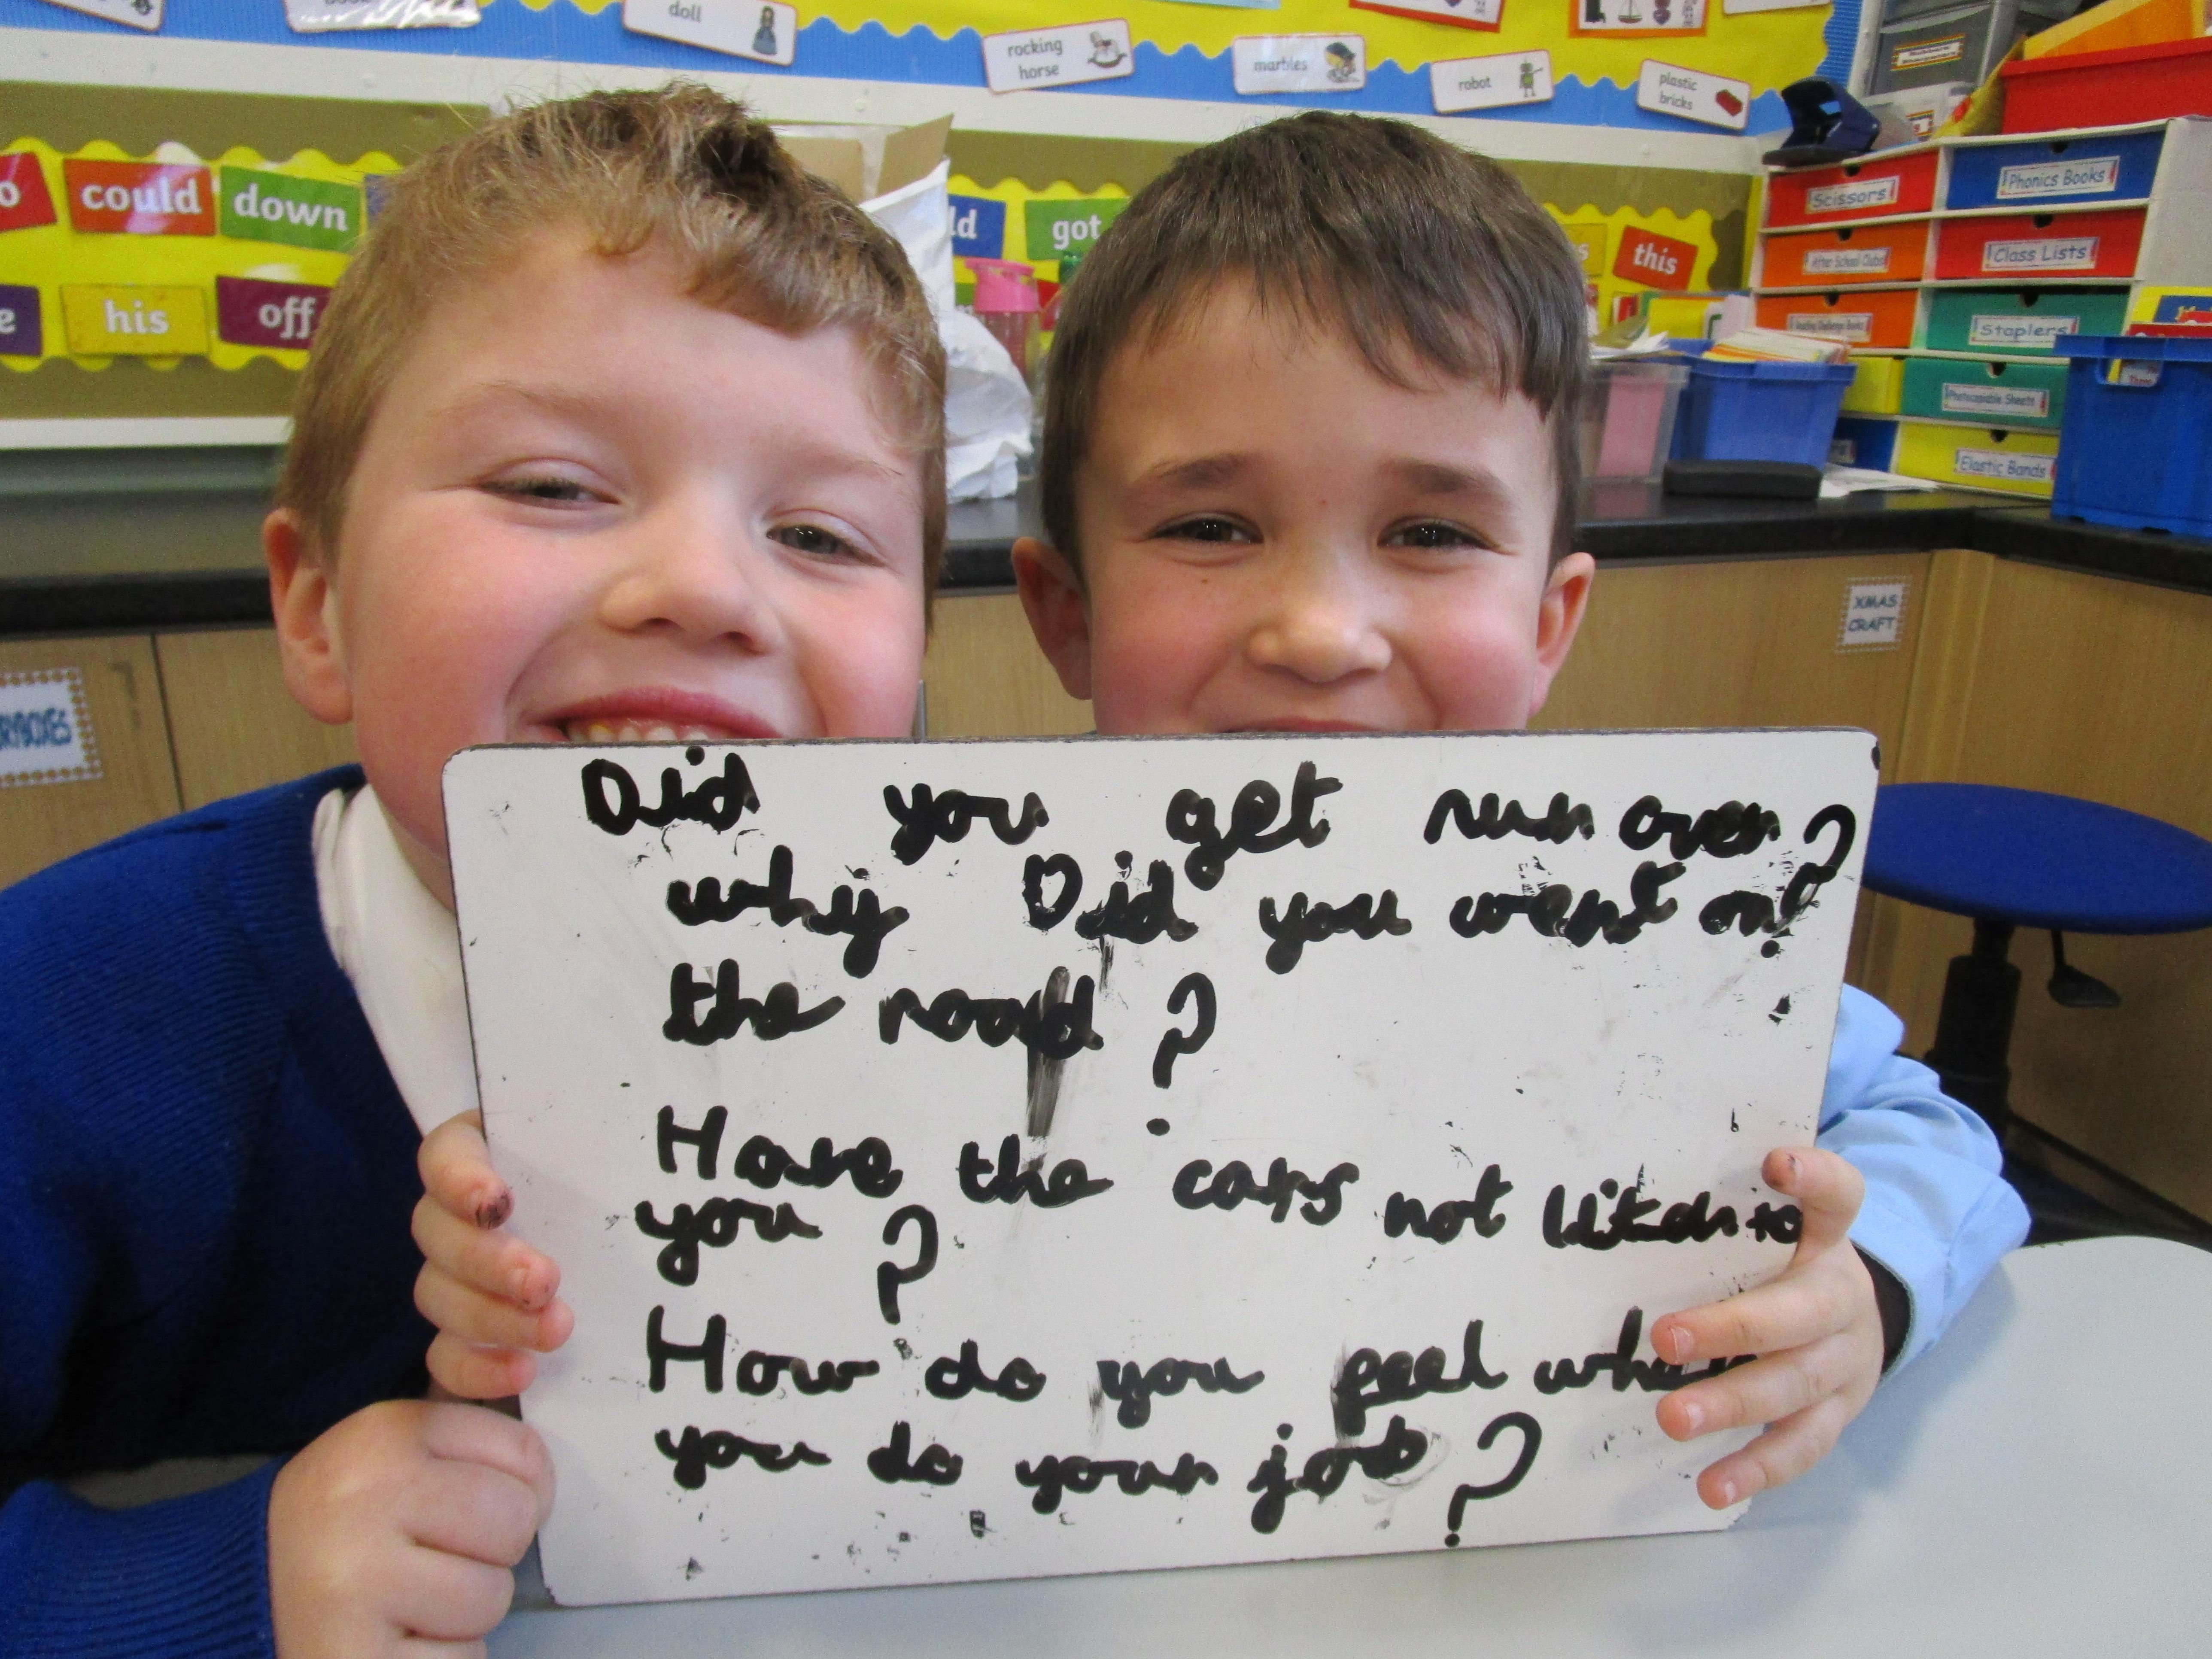 doll
rocking
horse
marbles
robot
plastic
bricks
could
down
got
this
his
off
Scissors
Phonics Books
After School Clubs
Class Lists
Reading Challenge Books
Staplers
Photocopiable Sheets
Elastic Bands
XMAS
CRAFT
Did you get run over?
why Did you went on?
the road?
Have the cars not liten to
you?
How do you feel when
you do your job?